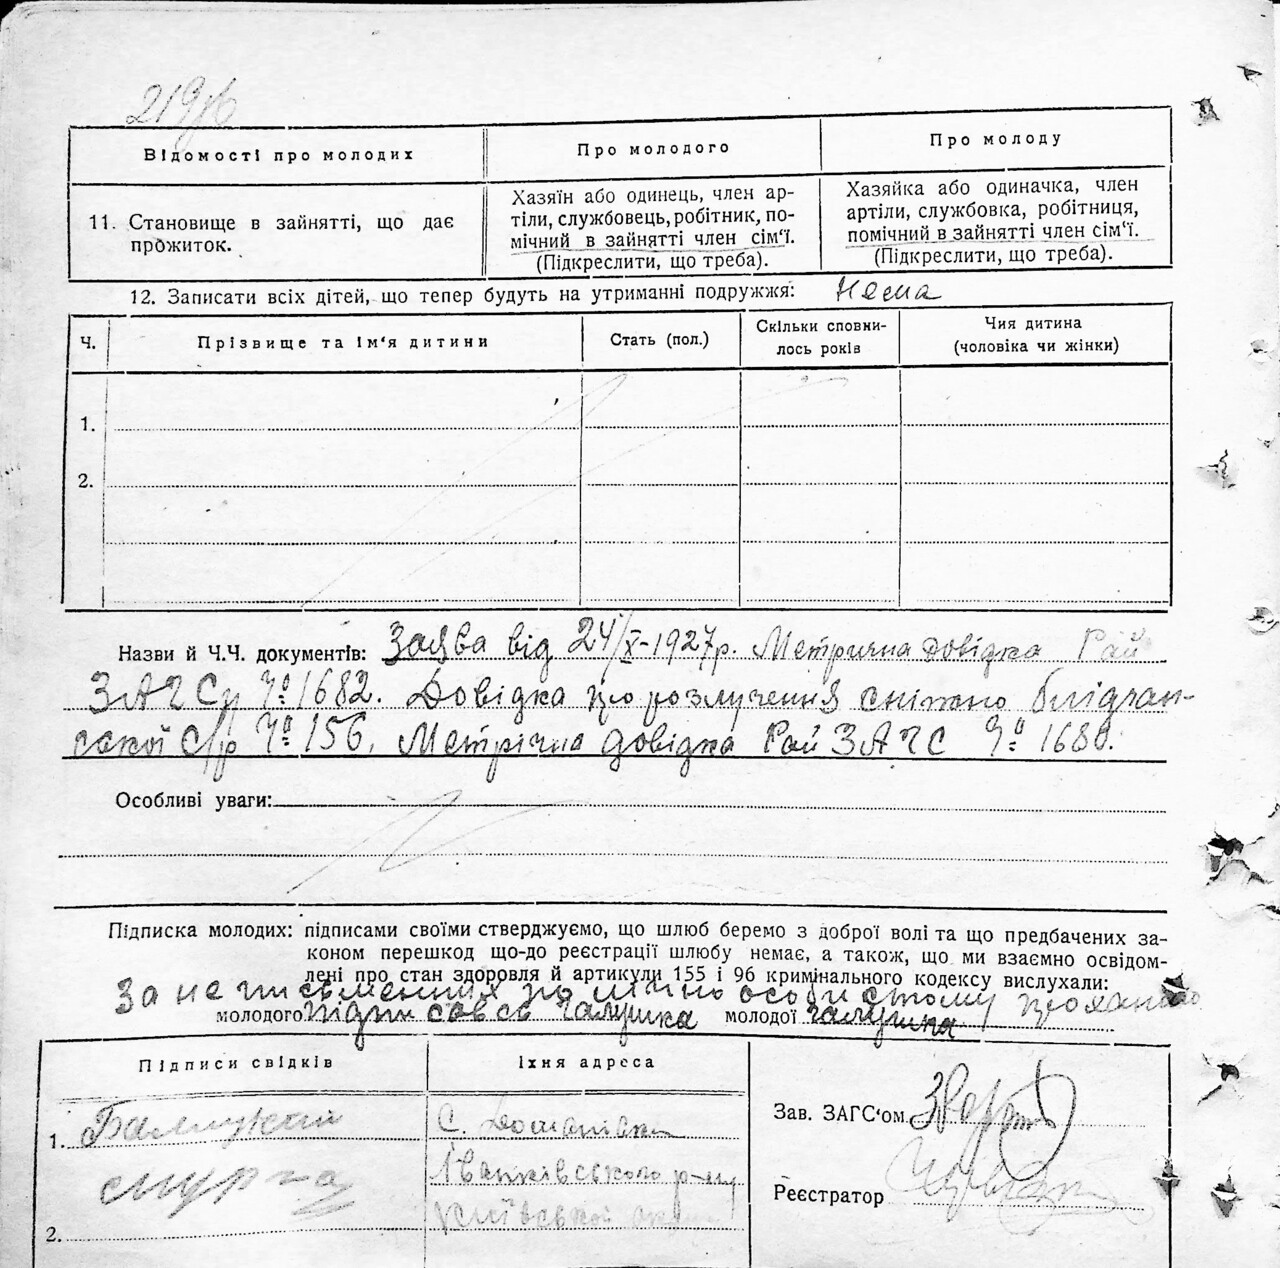 219зв
Відомості про молодих
Про молодого
Про молоду
11. Становище в зайнятті, що дає
прожиток.
Хазяїн або одинець, член ар-
тіли, службовець, робітник, по-
мічний в зайнятті член сім'ї.
(Підкреслити, що треба).
Хазяйка або одиначка, член
артіли, службовка, робітниця,
помічний в зайнятті член сім'ї.
(Підкреслити, що треба).
12. Записати всіх дітей, що тепер будуть на утриманні подружжя: Нема
Ч.
Прізвище та ім'я дитини
Стать (пол.)
Скільки сповни-
лось років
Чия дитина
(чоловіка чи жінки)
1.
2.
Назви й Ч.Ч. документів: Заява від 24/X-1927р. Метрична довідка Рай
ЗАГСу № 1682. Довідка про розлучення
ської с/р № 156. Метрична довідка Рай ЗАГС № 1680.
Особливі уваги:
Підписка молодих: підписами своїми стверджуємо, що шлюб беремо з доброї волі та що предбачених за-
коном перешкод що-до реєстрації шлюбу немає, а також, що ми взаємно освідом-
лені про стан здоровля й артикули 155 і 96 кримінального кодексу вислухали:
За неписьменних по їхньому особистому проханню
молодого підписався Галушка молодої Галушка
Підписи свідків
Їхня адреса
1.
С.
Іванківського р-ну
Київської округи
2.
Зав. ЗАГС'ом
Реєстратор